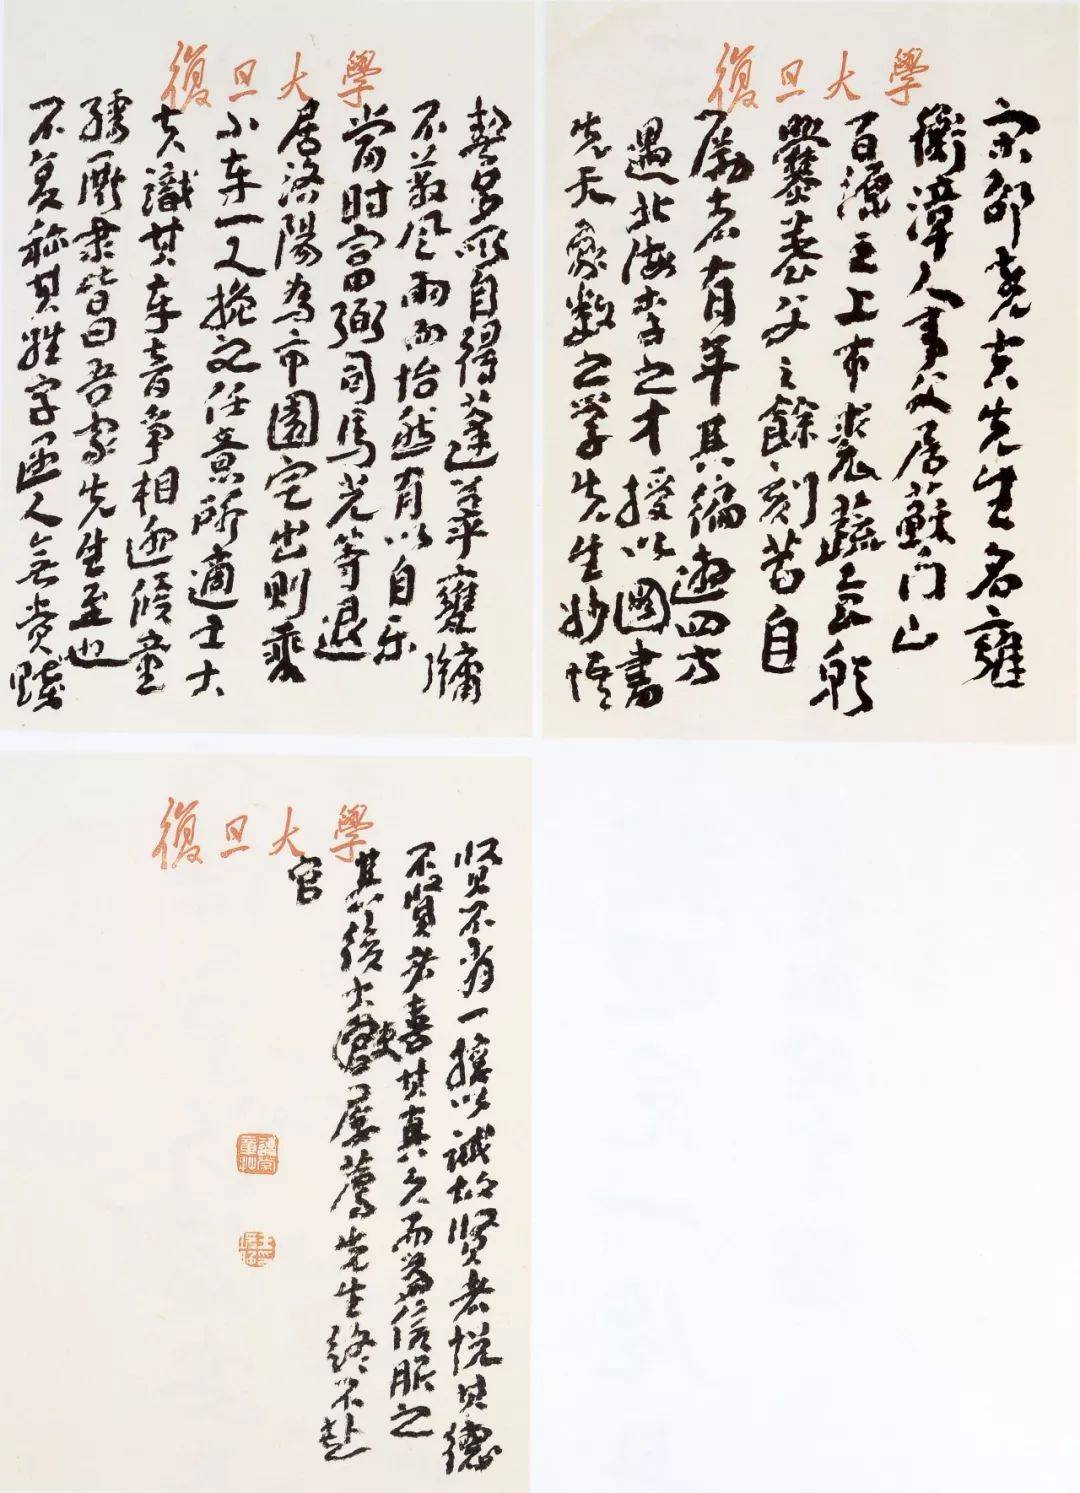 復旦大學
宋邵堯夫先生名雍
衡漳人事父居蘇门山
百源之上布裘蔬食躬
爨養父之餘刻苦自
勵者有年其徧遊四方
遇北海李之才授以圖書
先天象数之学先生妙悟
復旦大學
契多所自得蓬荜甕牖
不蔽风雨而怡然有以自乐
當时富弼司馬光等退
居洛陽為市園宅出则乘
小车一人挽之任意所適士大
夫識其车音争相迎候童
孺厮隶皆曰吾家先生至也
不复称其姓字遇人无贵賤
復旦大學
贤不肖一接以诚故贤者悦其德
不贤者喜其真久而益信服之
其後大屡薦先生終不赴
官